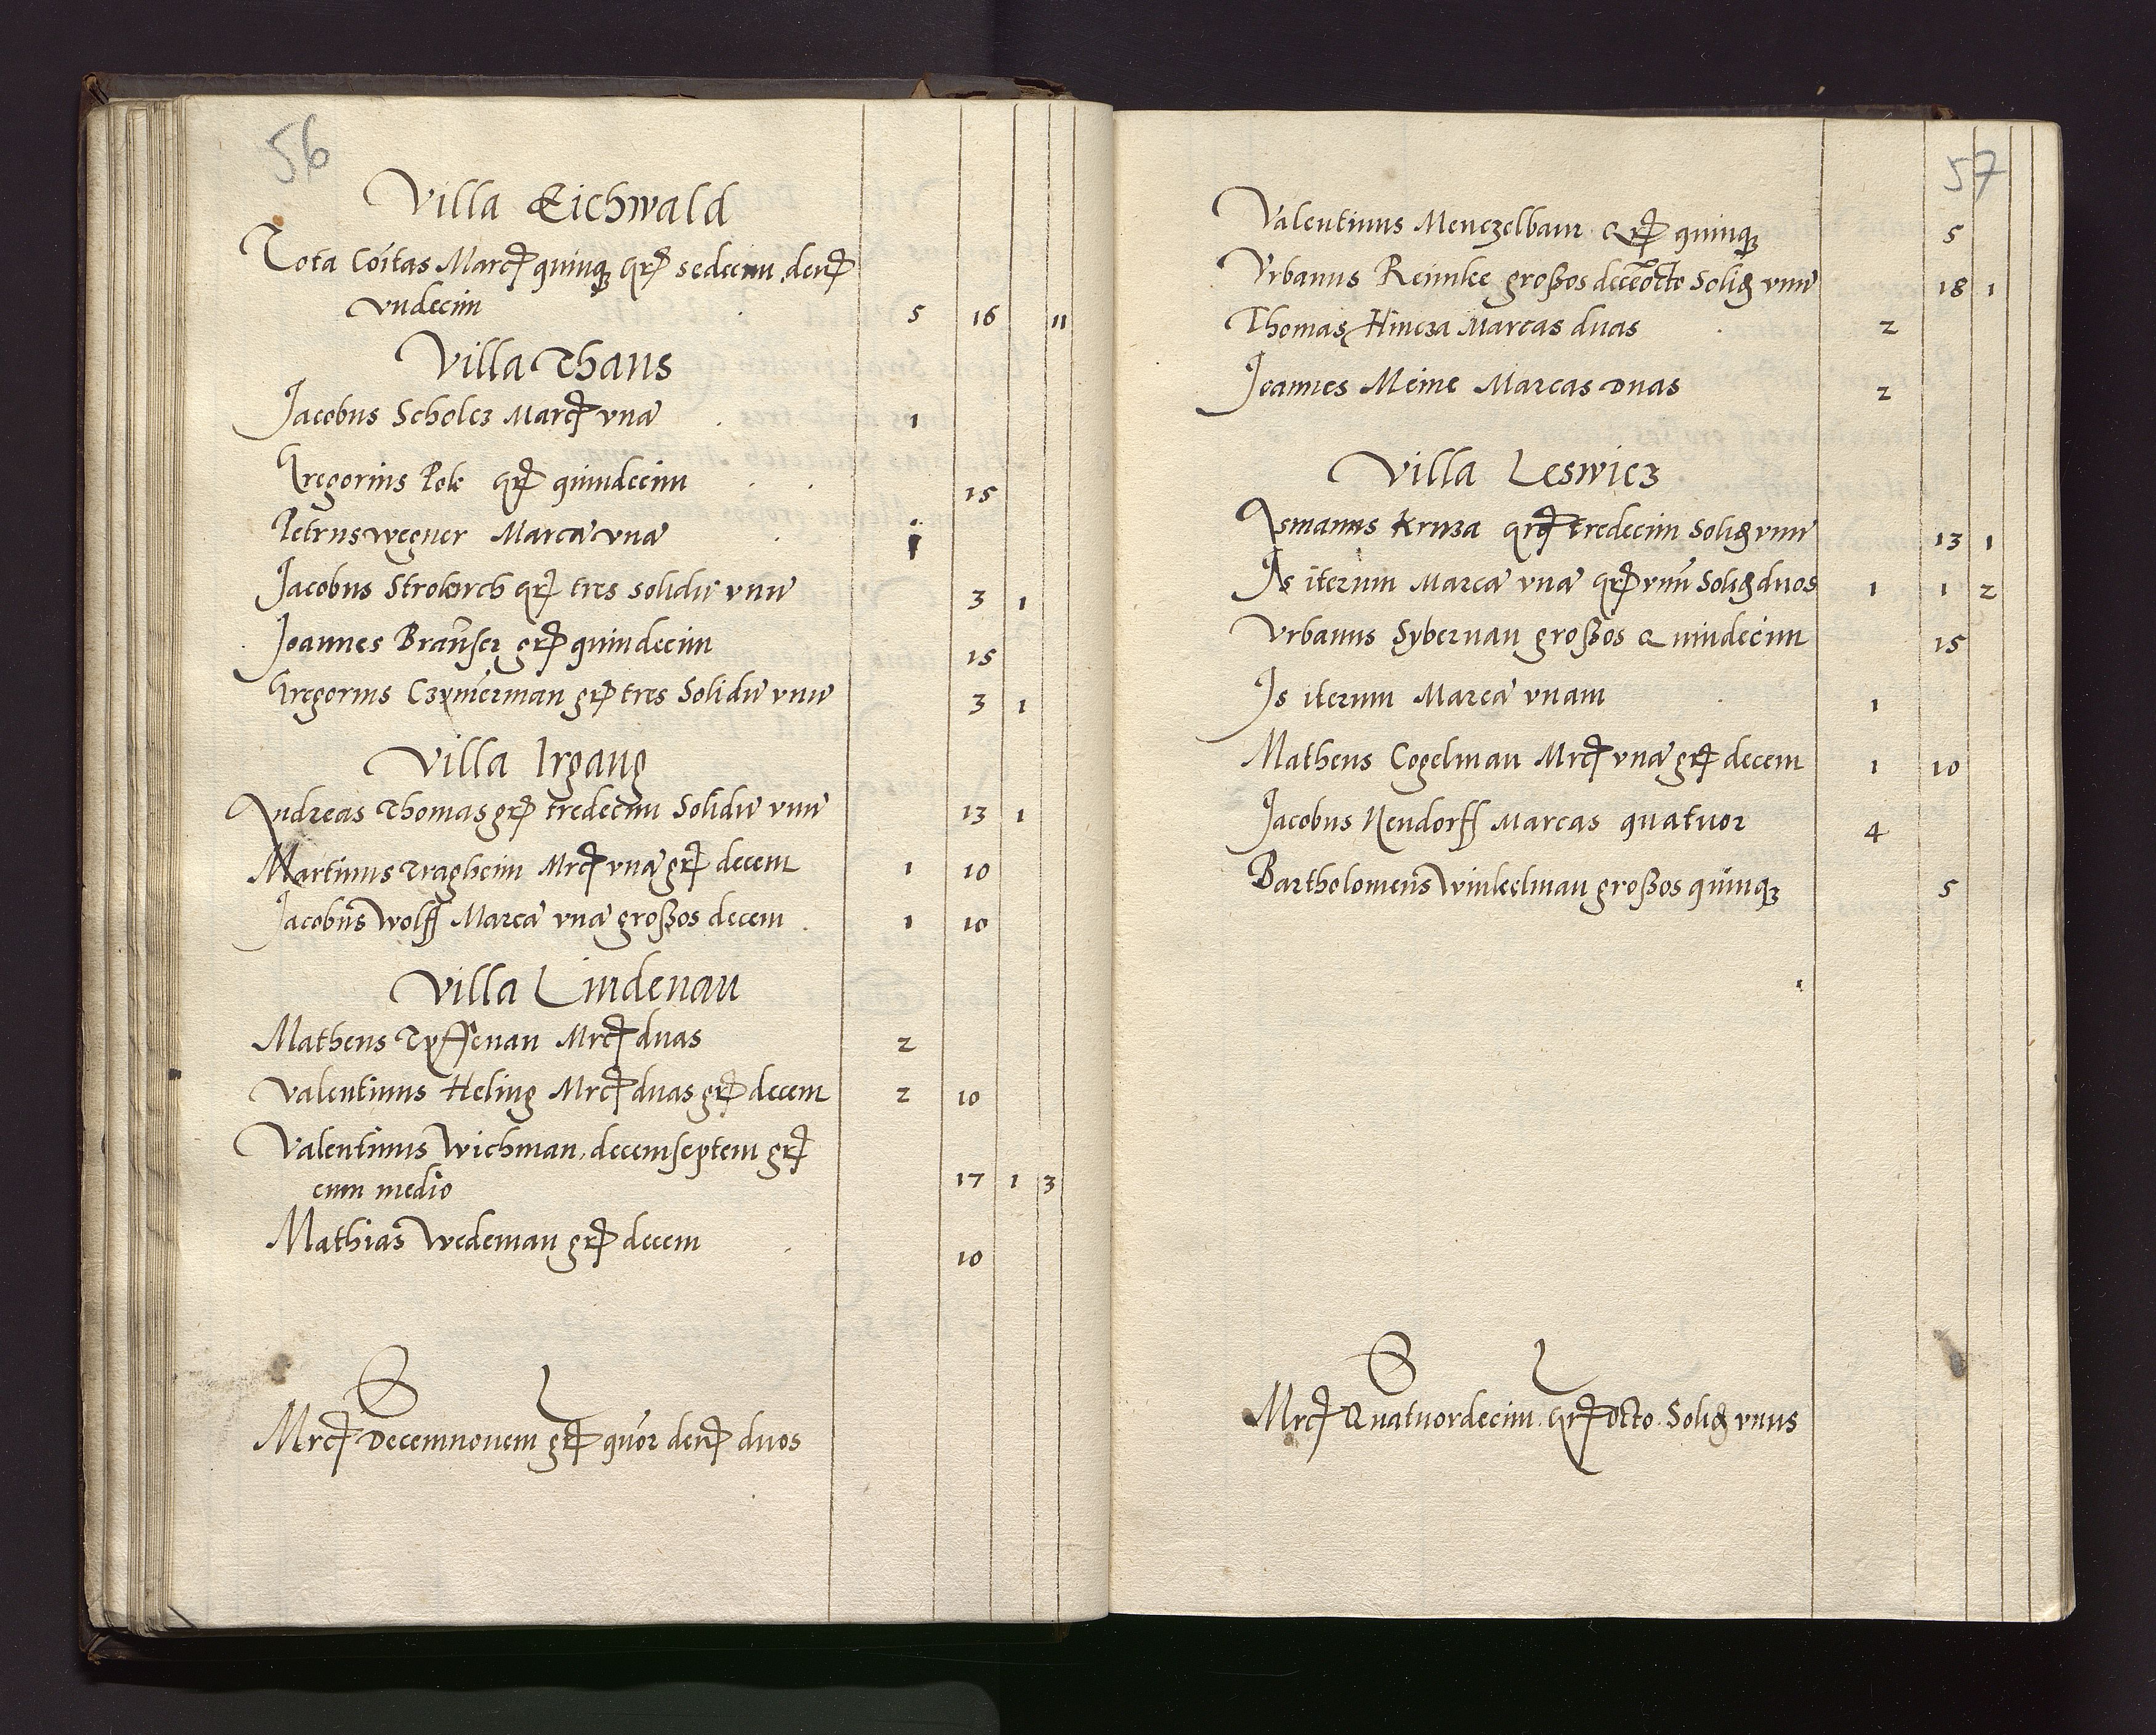 56
Villa Eichwald
Tota Cōitas Marc quinq; gr sedecim, den
vndecim 5 16 11
Villa Thans
Jacobus Scholcz Marc vnā 1
Gregorius Polk gr quindecim 15
Petrus Wegner Marcā vnā 1
Jacobus gr tres solidū vnū 3 1
Joannes gr quindecim 15
Gregorius Czymerman gr tres Solidū vnū 3 1
Villa Irgang
Andreas Thomas gr tredecim Solidū vnū 13 1
Martinus Tragheim Mrc vnā gr decem 1 10
Jacobus Wolff Marcā vnā großos decem 1 10
Villa Lindenau
Matheus Tyffenau Mrc duas 2
Valentinus Heling Mrc duas gr decem 2 10
Valentinus Wichman, decemseptem gr
cum medio 17 1 3
Mathias Wedeman gr decem 10
S L
Mrc Decemnouem gr quor den duos
57
Valentinus Menczelbaur gr quinq; 5
Vrbanus Reimke großos deceōcto Solid vnū 18 1
Thomas Hincza Marcas duas 2
Joannes Meine Marcas duas 2
Villa Leswicz
Asmanus Kruza gr tredecim Solid vnū 13 1
Is iterum Marcā vnā gr vnū Solid duos 1 1 2
Vrbanus Sybernau großos Quindecim 15
Is iterum Marcā vnam 1
Matheus Cogelman Mrc vnā gr decem 1 10
Jacobus Nendorff Marcas quatuor 4
Bartholomeus Winkelman großos quinq; 5
S L
Mrc Quatuordecim gr octo Solid vnus